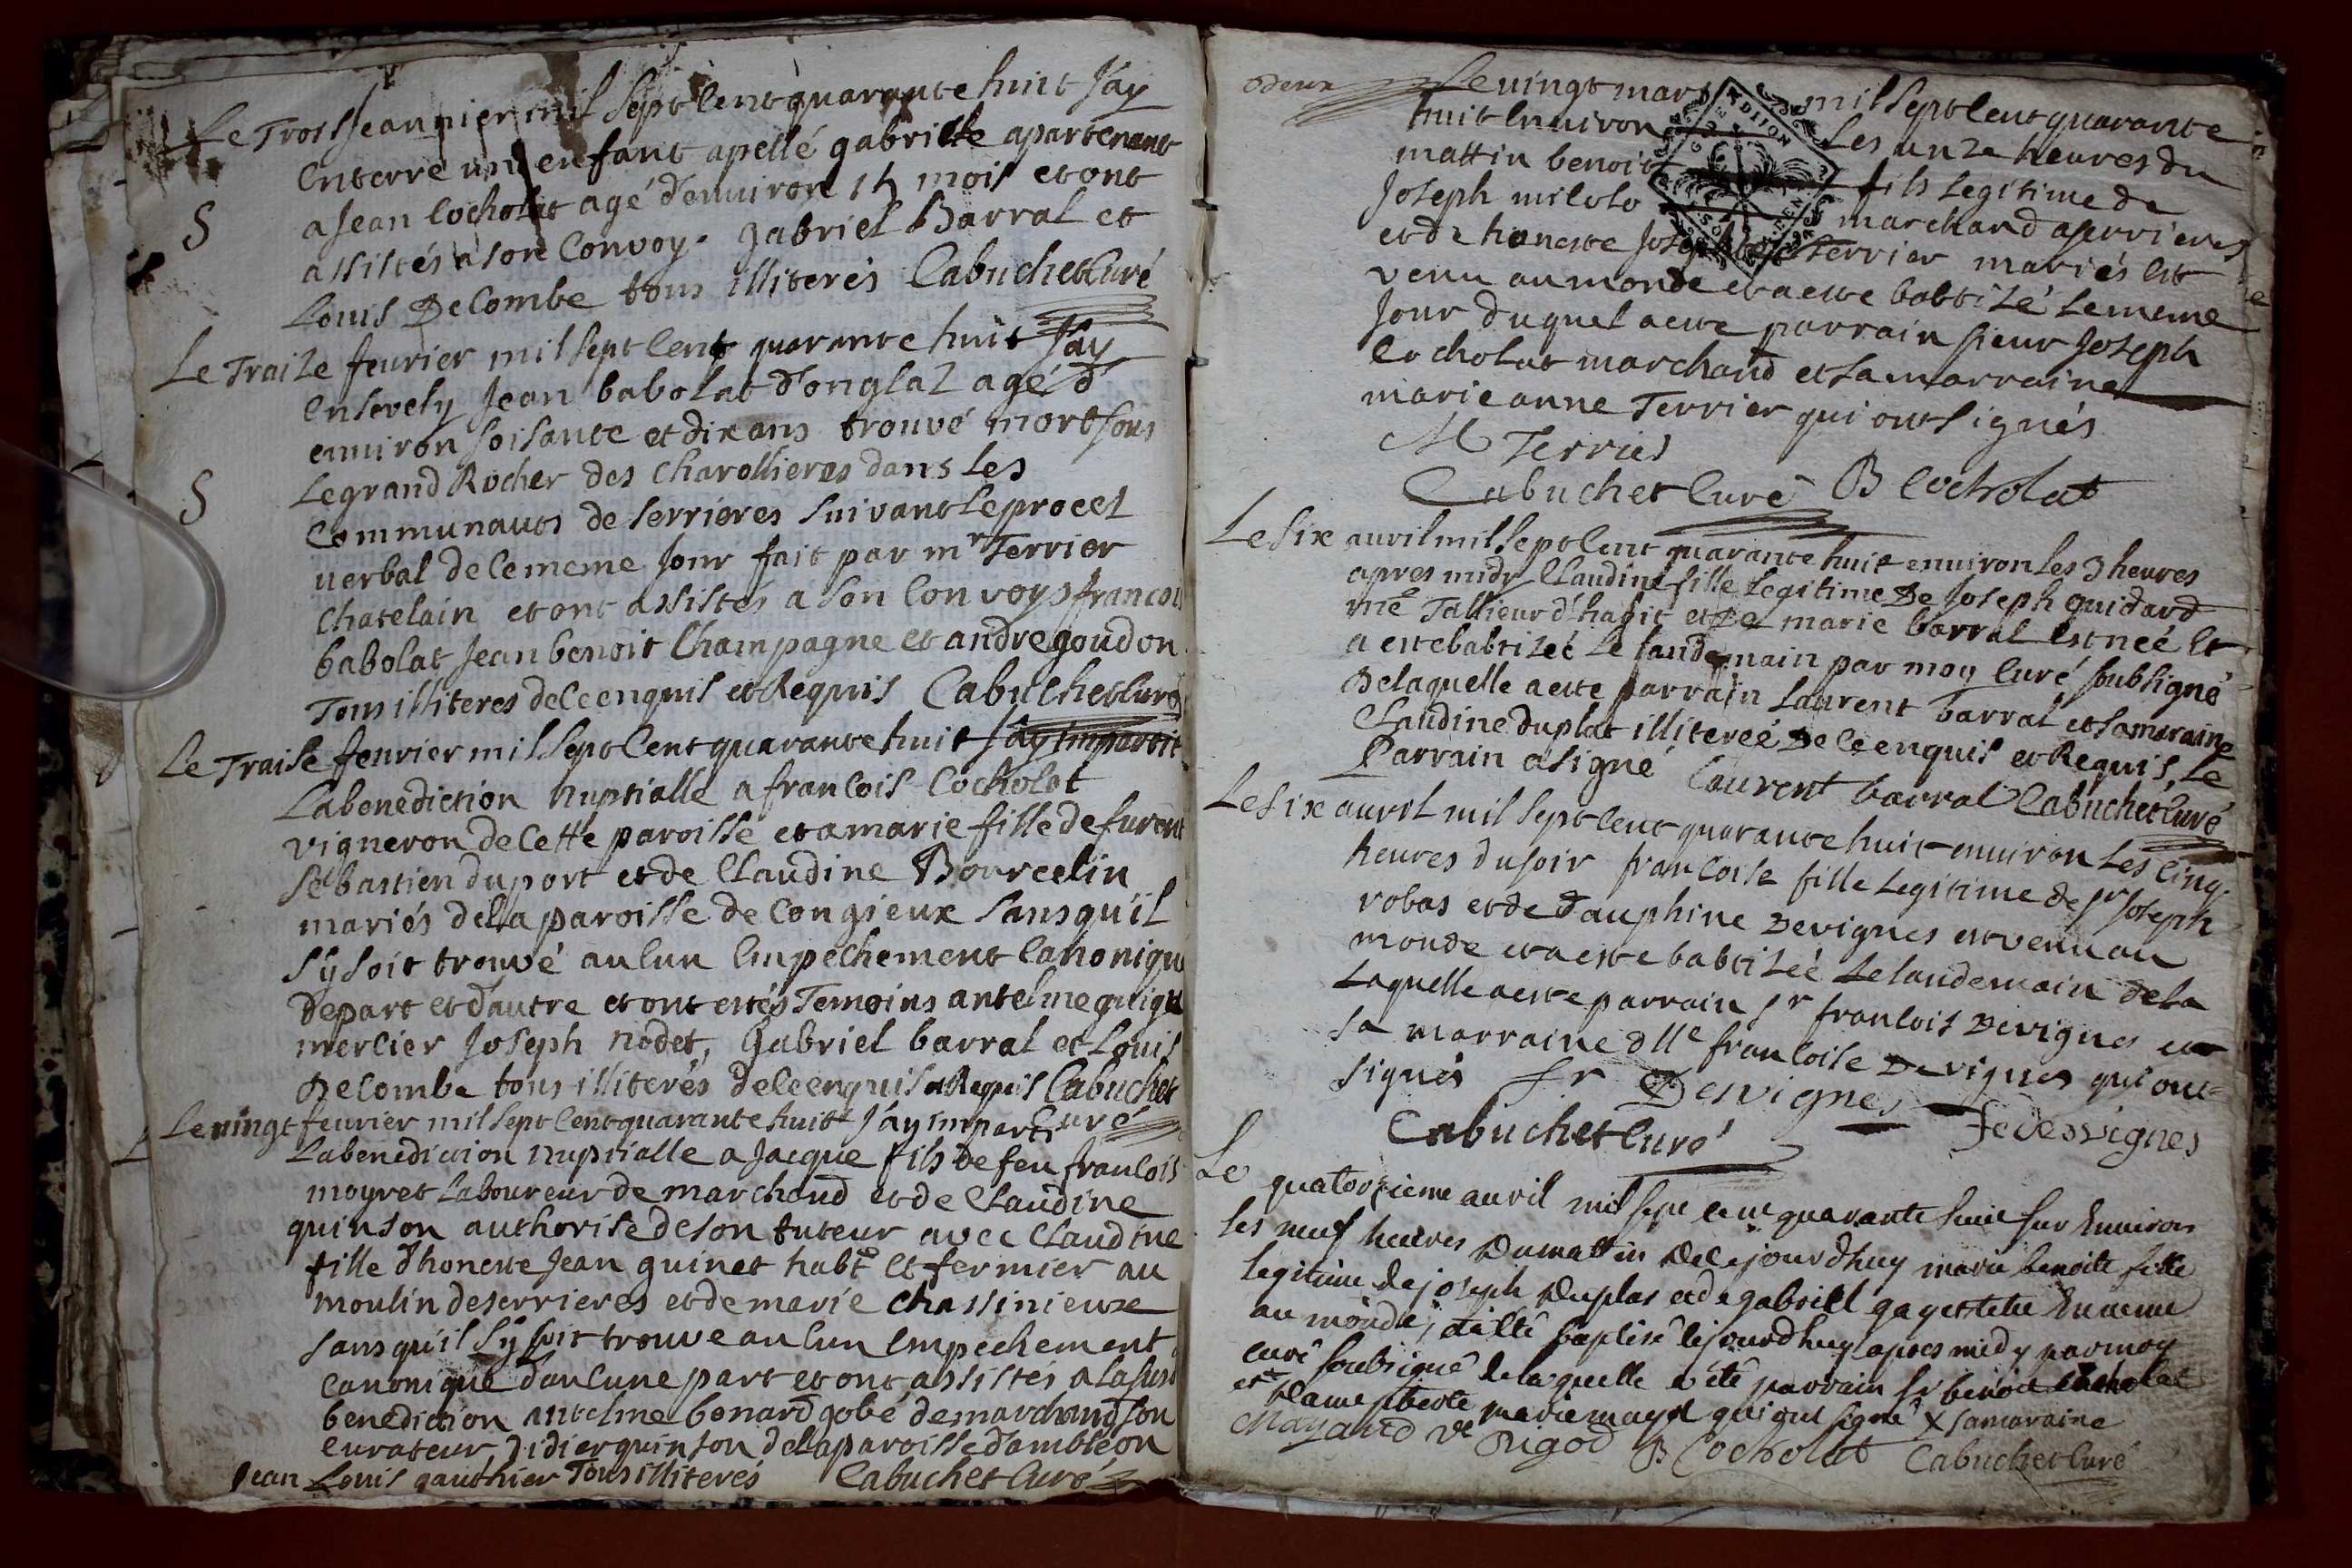 Le Trois Jeanvier mil sept cent quarante huit J'ay
enterré un enfant apellé gabrielle apartenant
a Jean Cocholat agé d'environ 15 mois et ont
S
assistés a son Convoy. gabriel Barral et
Louis Decombe tous illiterés Cabuchet Curé
Le Traize fevrier mil sept cent quarante huit J'ay
ensevely Jean babolat d'onglaz agé d'
environ soisante et dix ans trouvé mort sous
Le grand Rocher des Charollieres dans les
S
Communauts de serrieres suivant le procet
verbal de ce meme Jour fait par mr Terrier
Chatelain et ont assistés a son Convoys francois
babolat Jean benoit Champagne et andre goudon
Tous illiteres de ce enquis et Requis Cabuchet Curé
Le Traise fevrier mil sept cent quarante huit J'ay imparti
La benediction nuptialle a francois Cocholat
vigneron de cette paroisse et a marie fille de furent
sebastien duport et de Claudine Bourcelin
mariés de la paroisse de Congieux sans qu'il
s'y soit trouvé aucun empechement Canoniqu
de part et d'autre et ont estés Temoins antelme guigu
mercier Joseph nodet, Gabriel barral et Louis
Decombe tous illiterés de ce enquis et Requis Cabuchet
Curé
Le vingt fevrier mil sept cent quarante huit J'ay imparti
La benediction nuptialle a Jacque fils de feu francois
moyret Laboureur de marchand et de Claudine
quinson authorise de son tuteur avec Claudine
fille d'honeste Jean guinet habt et fermier au
moulin de serrieres et de marie Chassinieuxe
sans qu'il s'y soit trouve aucun empechement
canonique d'aucune part et ont assistés a la susd
benediction antelme bonard gobé de marchand son
curateur Didier quinson de la paroisse d'ambléon
Jean Louis gauthier Tous illiterés Cabuchet Curé
Le vingt mars mil sept cent quarante
huit environ Les unze heures du
mattin benoit fils legitime de
Joseph marchand a serrieres
et de honeste Terrier mariés est
venu au monde et a este babtizé le meme
Jour duquel a este parrain sieur Joseph
Cocholat marchand et sa marraine
marie anne Terrier qui ont signés
M Terrier
Cabuchet Curé B Cocholat
Le six avril mil sept cent quarante huit environ les 3 heures
apres midy Claudine fille legitime De Joseph guidard
me Tallieur d'habit et De marie barral est neé et
a este babtizeé le landemain par moy Curé soubsigné
De laquelle a este parrain Laurent barral et sa maraine
Claudine duplat illitereé De ce enquis et Requis, Le
Parrain a signé Laurent barral Cabuchet Curé
Le six avril mil sept cent quarante huit environ les cinq
heures du soir francoise fille legitime de sr Joseph
robas et de dauphine Devignes est venu au
monde et a este babtizeé le landemain de la
Laquelle a este parrain sr francois Devignes et
sa marraine dlle francoise Devignes qui ont
signés fr Desvignes
fe desvignes
Cabuchet Curé
Le quatorzieme avril mil sept cent quarante huit sur Environ
les neuf heures Du mattin De ce jourdhuy marie benoite fille
legitime de joseph Duplas et de gabriell
au monde, baptisé ce jourdhuy apres midy par moy
curé soubsigné de laquelle a été parrain sr benoit Cocholat
et Dame marie mayet qui ont signé X sa maraine
Mayand ve Rigod B Cocholat Cabuchet Curé